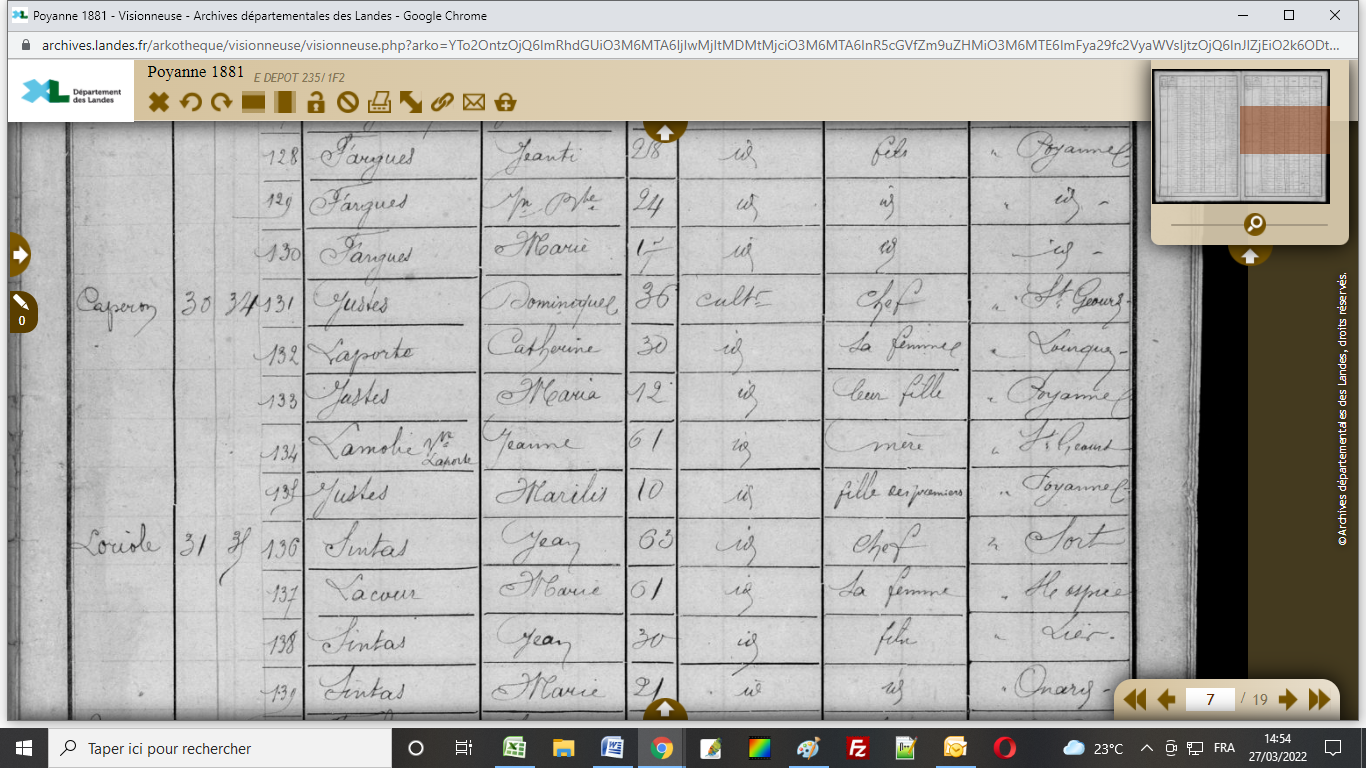 Poyanne 1881 - Visionneuse - Archives départementales des Landes - Google Chrome
archives.landes.fr/arkotheque/visionneuse/visionneuse.php?arko=
XL Département des Landes
Poyanne 1881 E DEPOT 235/1F2
128 Fargues Jeanti 28 id fils " Poyanne
129 Fargues Jn Bte 24 id id " id -
130 Fargues Marie id id - id -
Caperon 30 34 131 Justes Dominique 36 cultr chef " St Geours
132 Laporte Catherine 30 id sa femme " Lourquen
133 Justes Maria 12 id leur fille " Poyanne
134 Lamolie Vve Laporte Jeanne 61 id mère " St Geours
135 Justes Marilis 10 id fille des premiers " Poyanne
Loriole 31 35 136 Sintas Jean 63 id chef " Sort
137 Lacour Marie 61 id sa femme " Hospice
138 Sintas Jean 30 id fils " Lier -
139 Sintas Marie 21 id id " Onard -
0
©Archives départementales des Landes, droits réservés.
7 / 19
Taper ici pour rechercher
23°C
FRA
14:54
27/03/2022